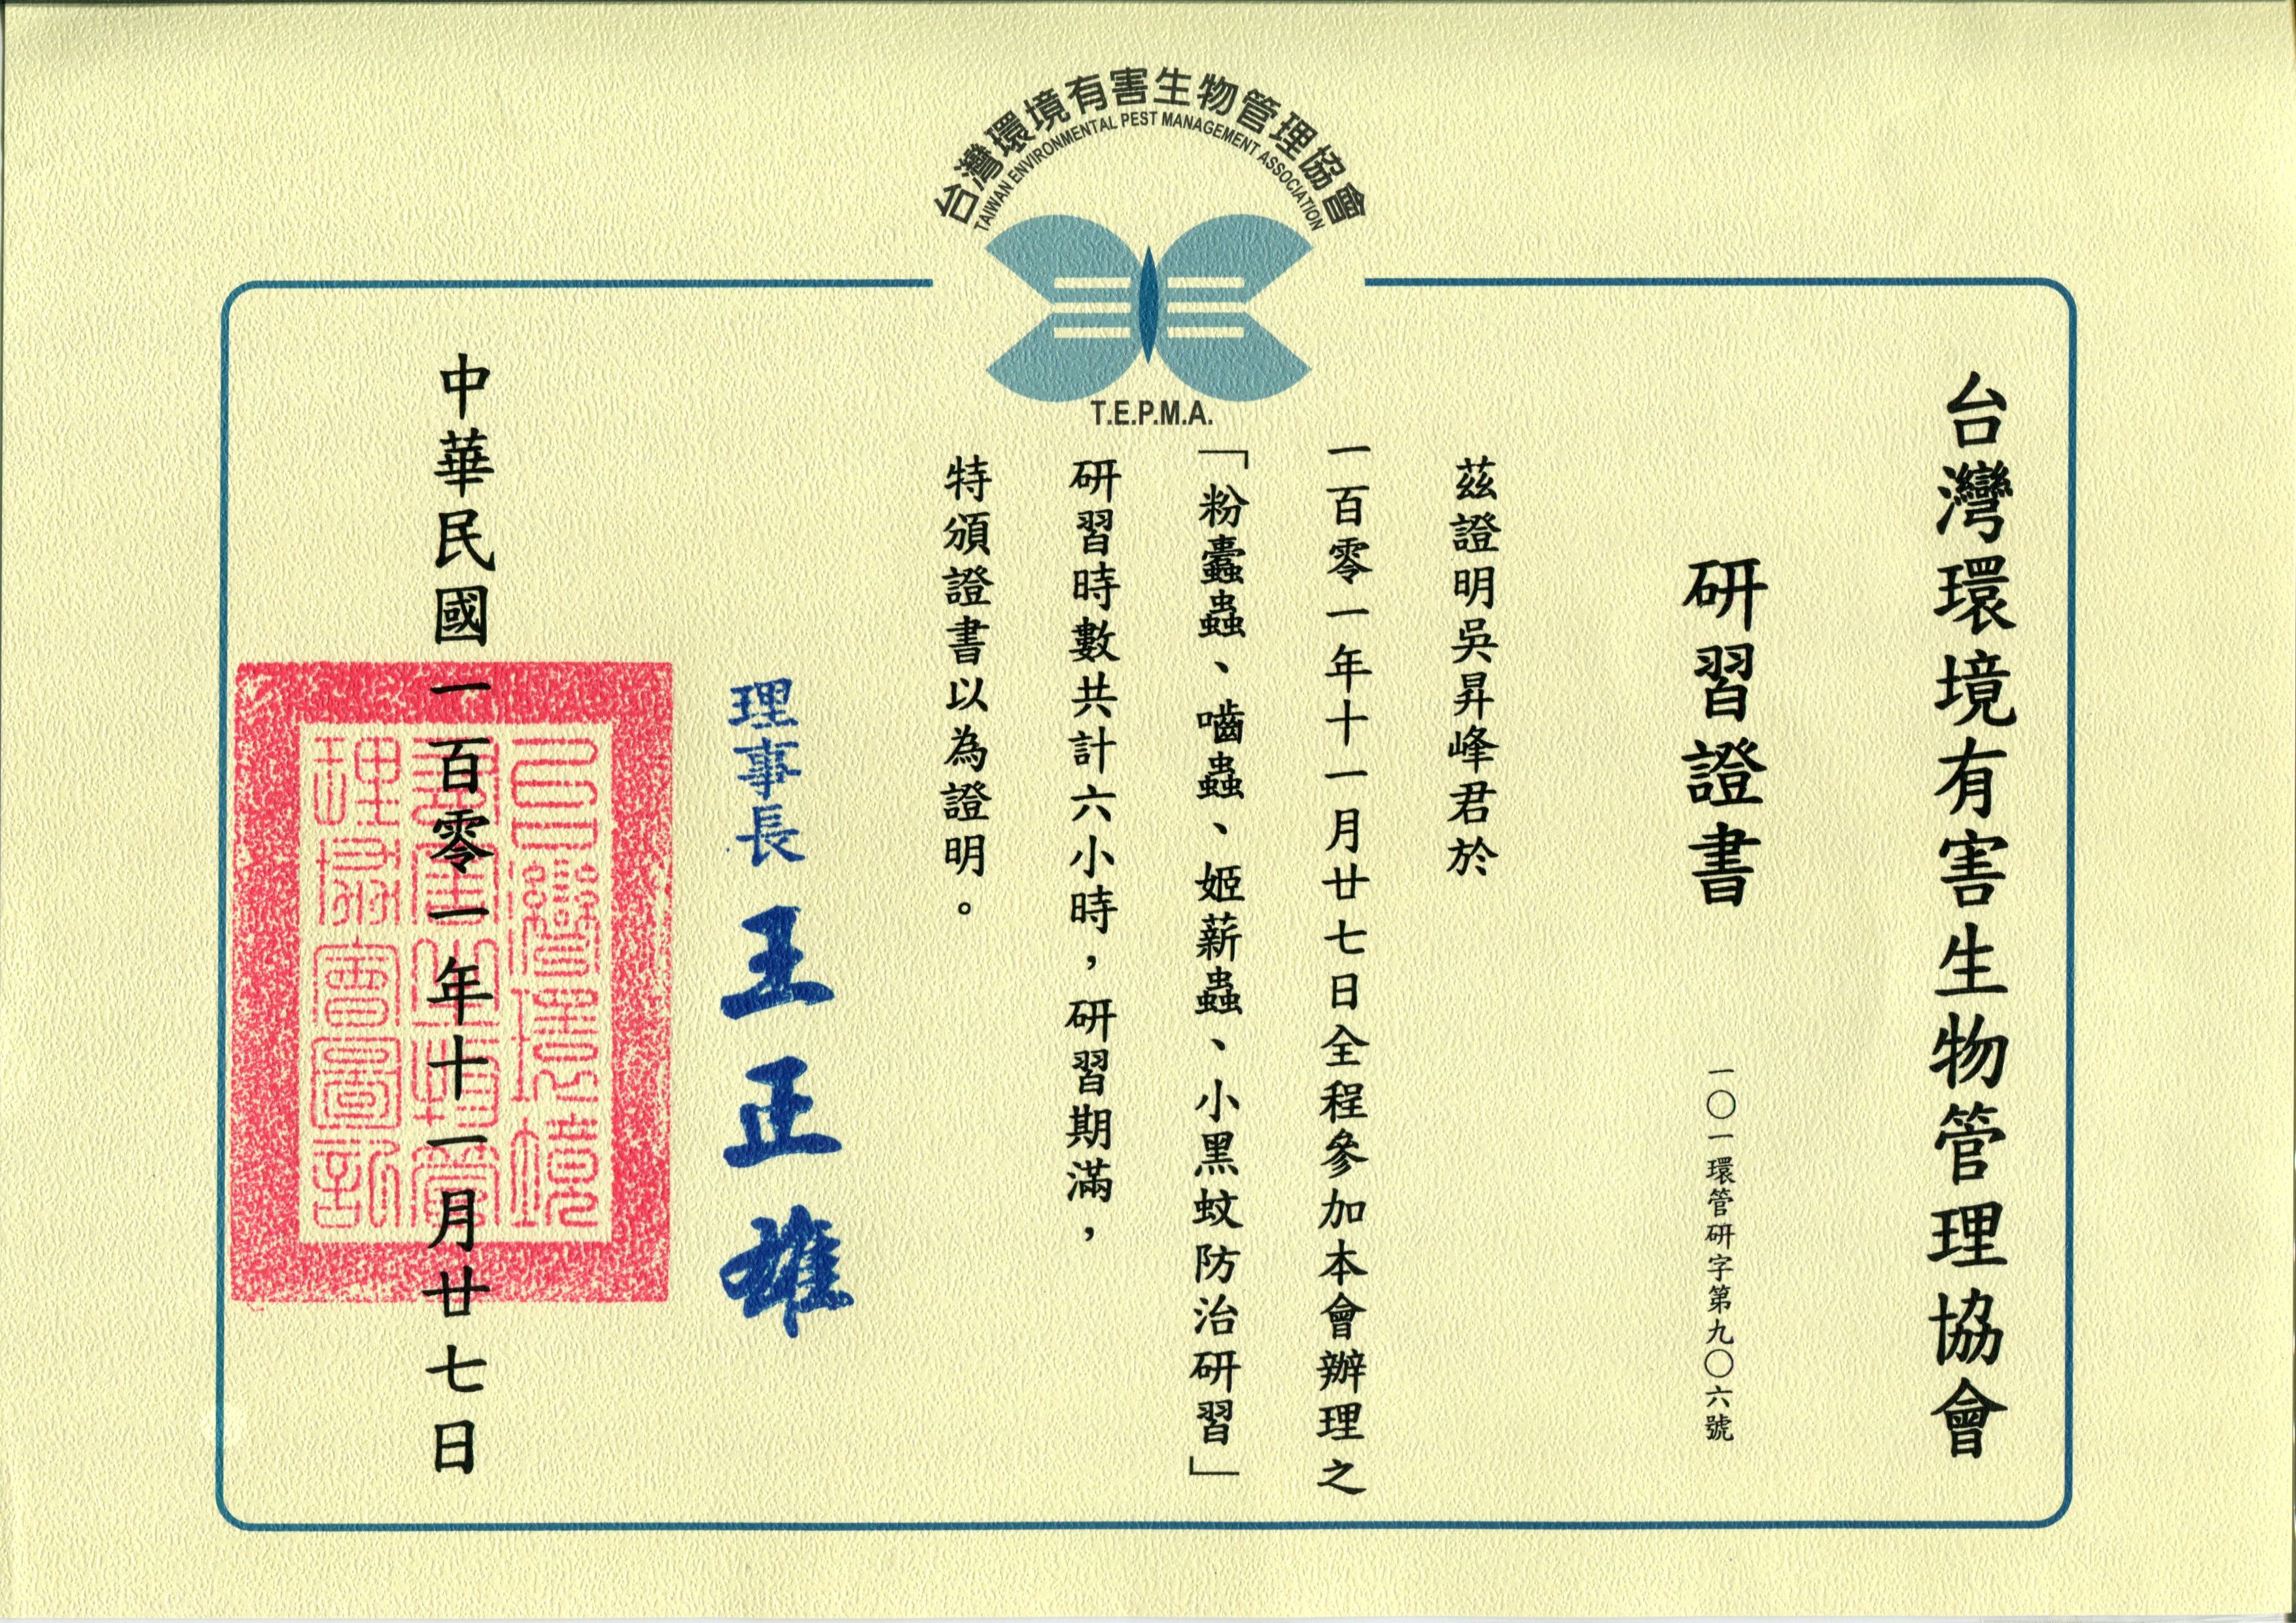 台灣環境有害生物管理協會
TAIWAN ENVIRONMENTAL PEST MANAGEMENT ASSOCIATION
T.E.P.M.A.
台灣環境有害生物管理協會
研習證書
一〇一環管研字第九〇六號
茲證明吳昇峰君於
一百零一年十一月廿七日全程參加本會辦理之
「粉蠹蟲、嚙蟲、姬薪蟲、小黑蚊防治研習」
研習時數共計六小時，研習期滿，
特頒證書以為證明。
理事長 王正雄
中華民國一百零一年十一月廿七日